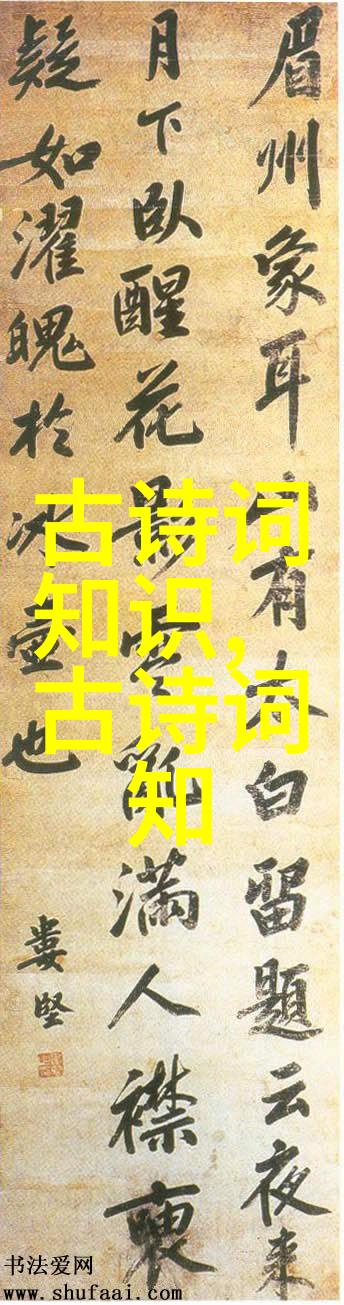 眉州象耳山有太白留題云夜来
月下臥醒花影零亂滿人襟
疑如濯魄於冰壺也
婁堅
古诗词
知识,
古诗词
知
书法爱网
www.shufaai.com